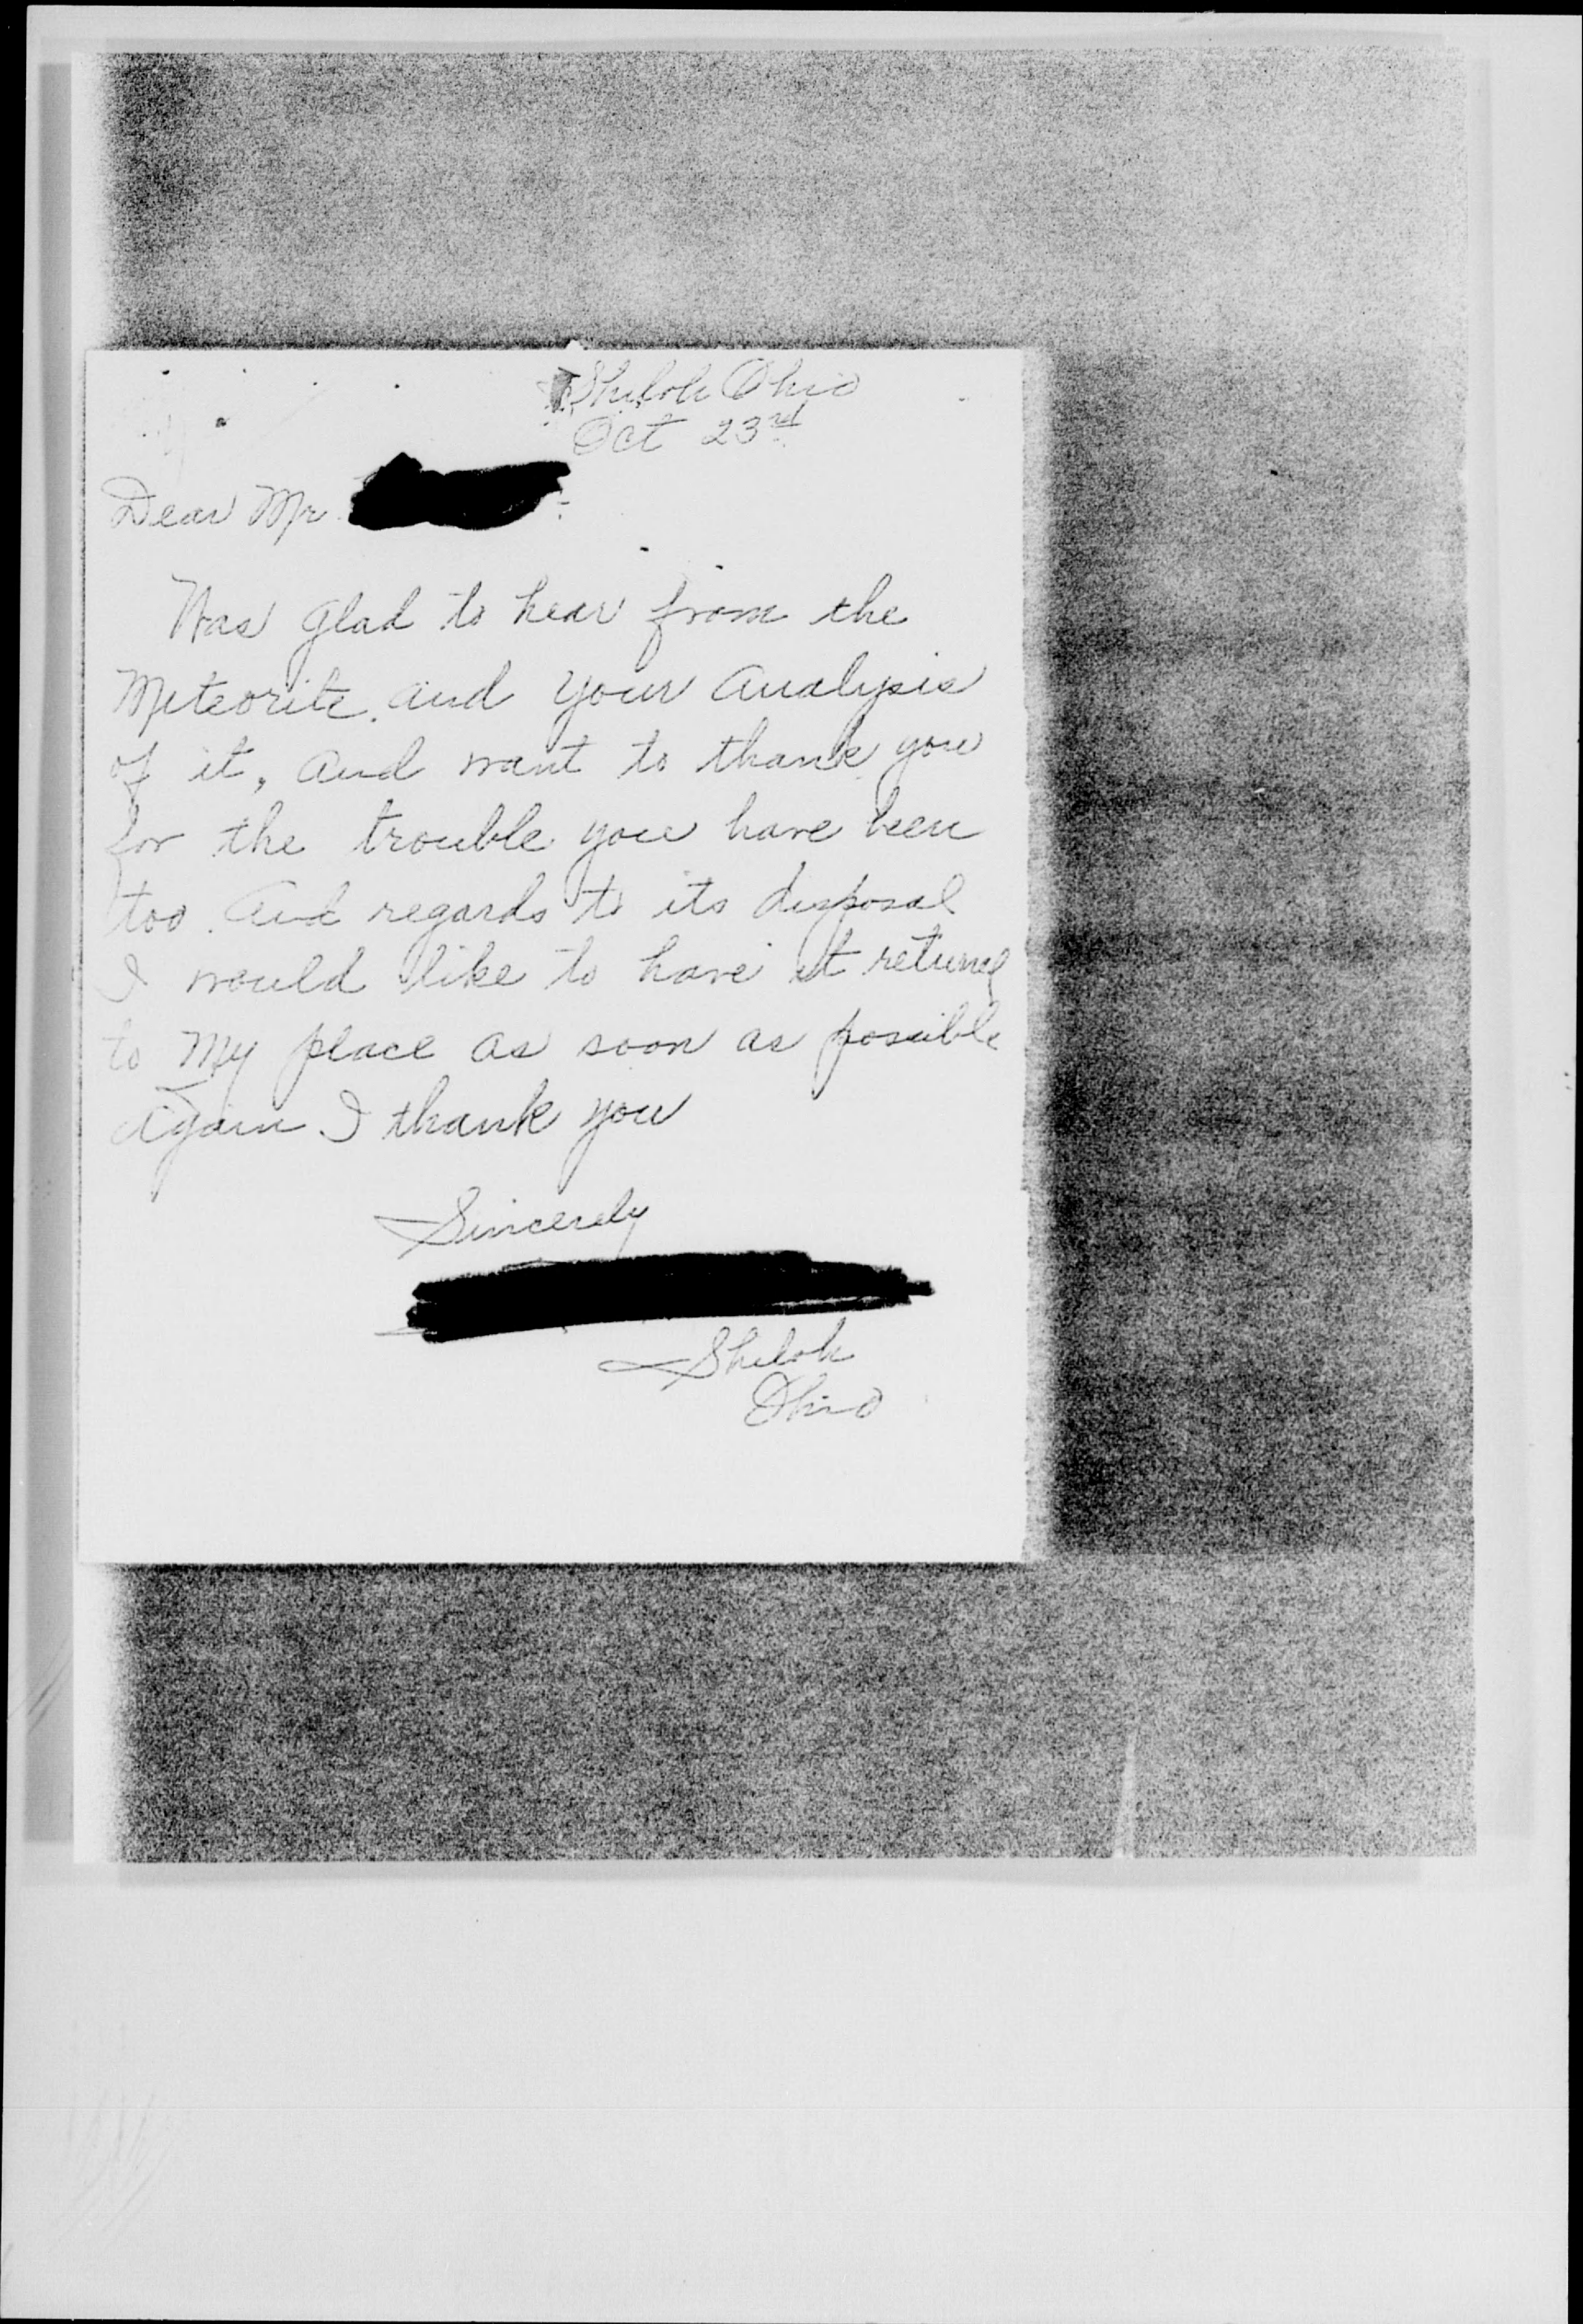 Shiloh Ohio
Oct 23rd
Dear Mr.
Was glad to hear from the
Meteorite. and your analysis
of it, and want to thank you
for the trouble you have been
too. And regards to its disposal
I would like to have it retuned
to my place as soon as possible
Again I thank you
Sincerely
Shiloh
Ohio